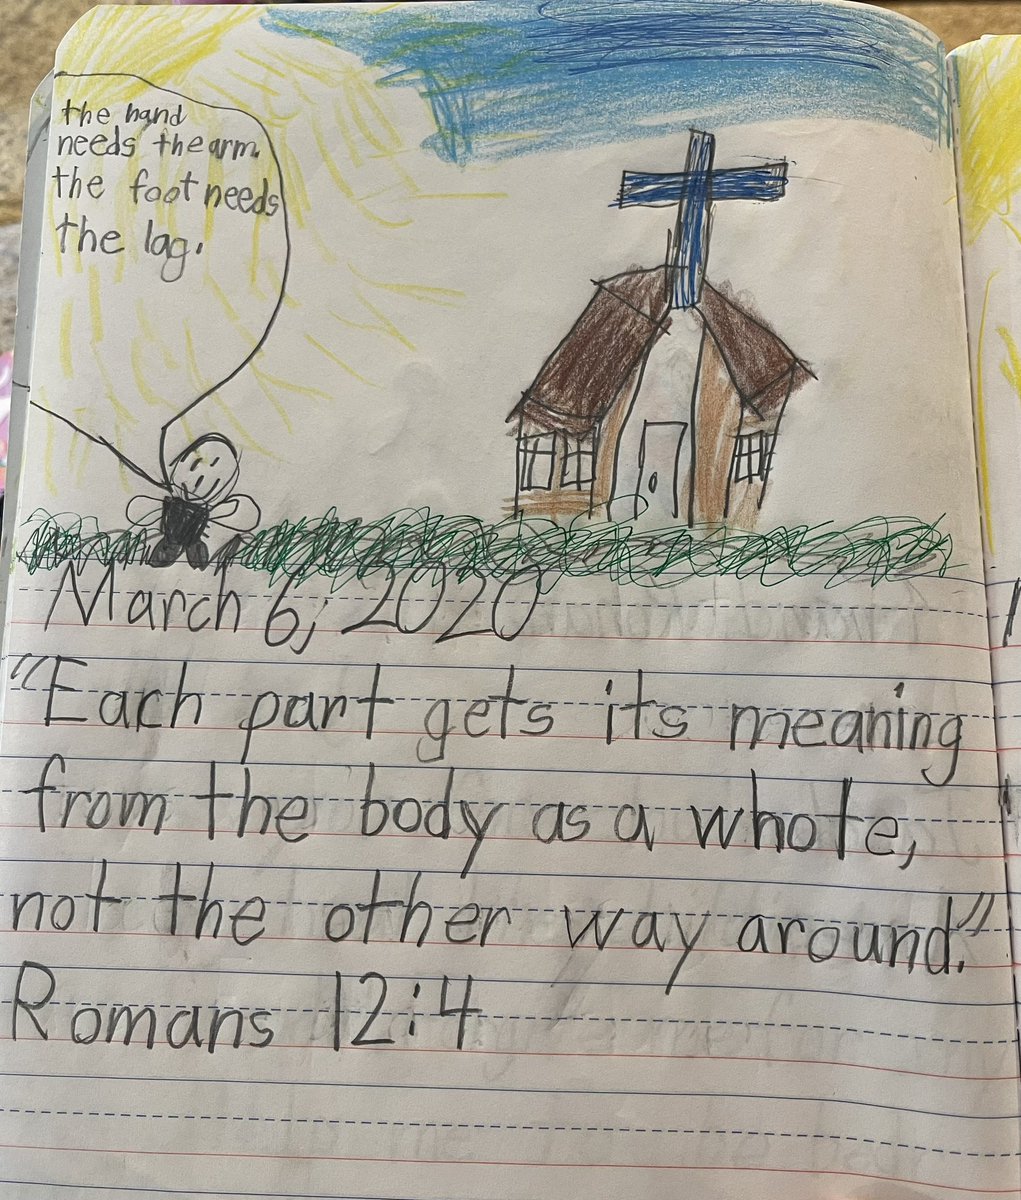 the hand
needs the arm.
the foot needs
the lag.
March 6, 2020
"Each part gets its meaning
from the body as a whole,
not the other way around."
Romans 12:4